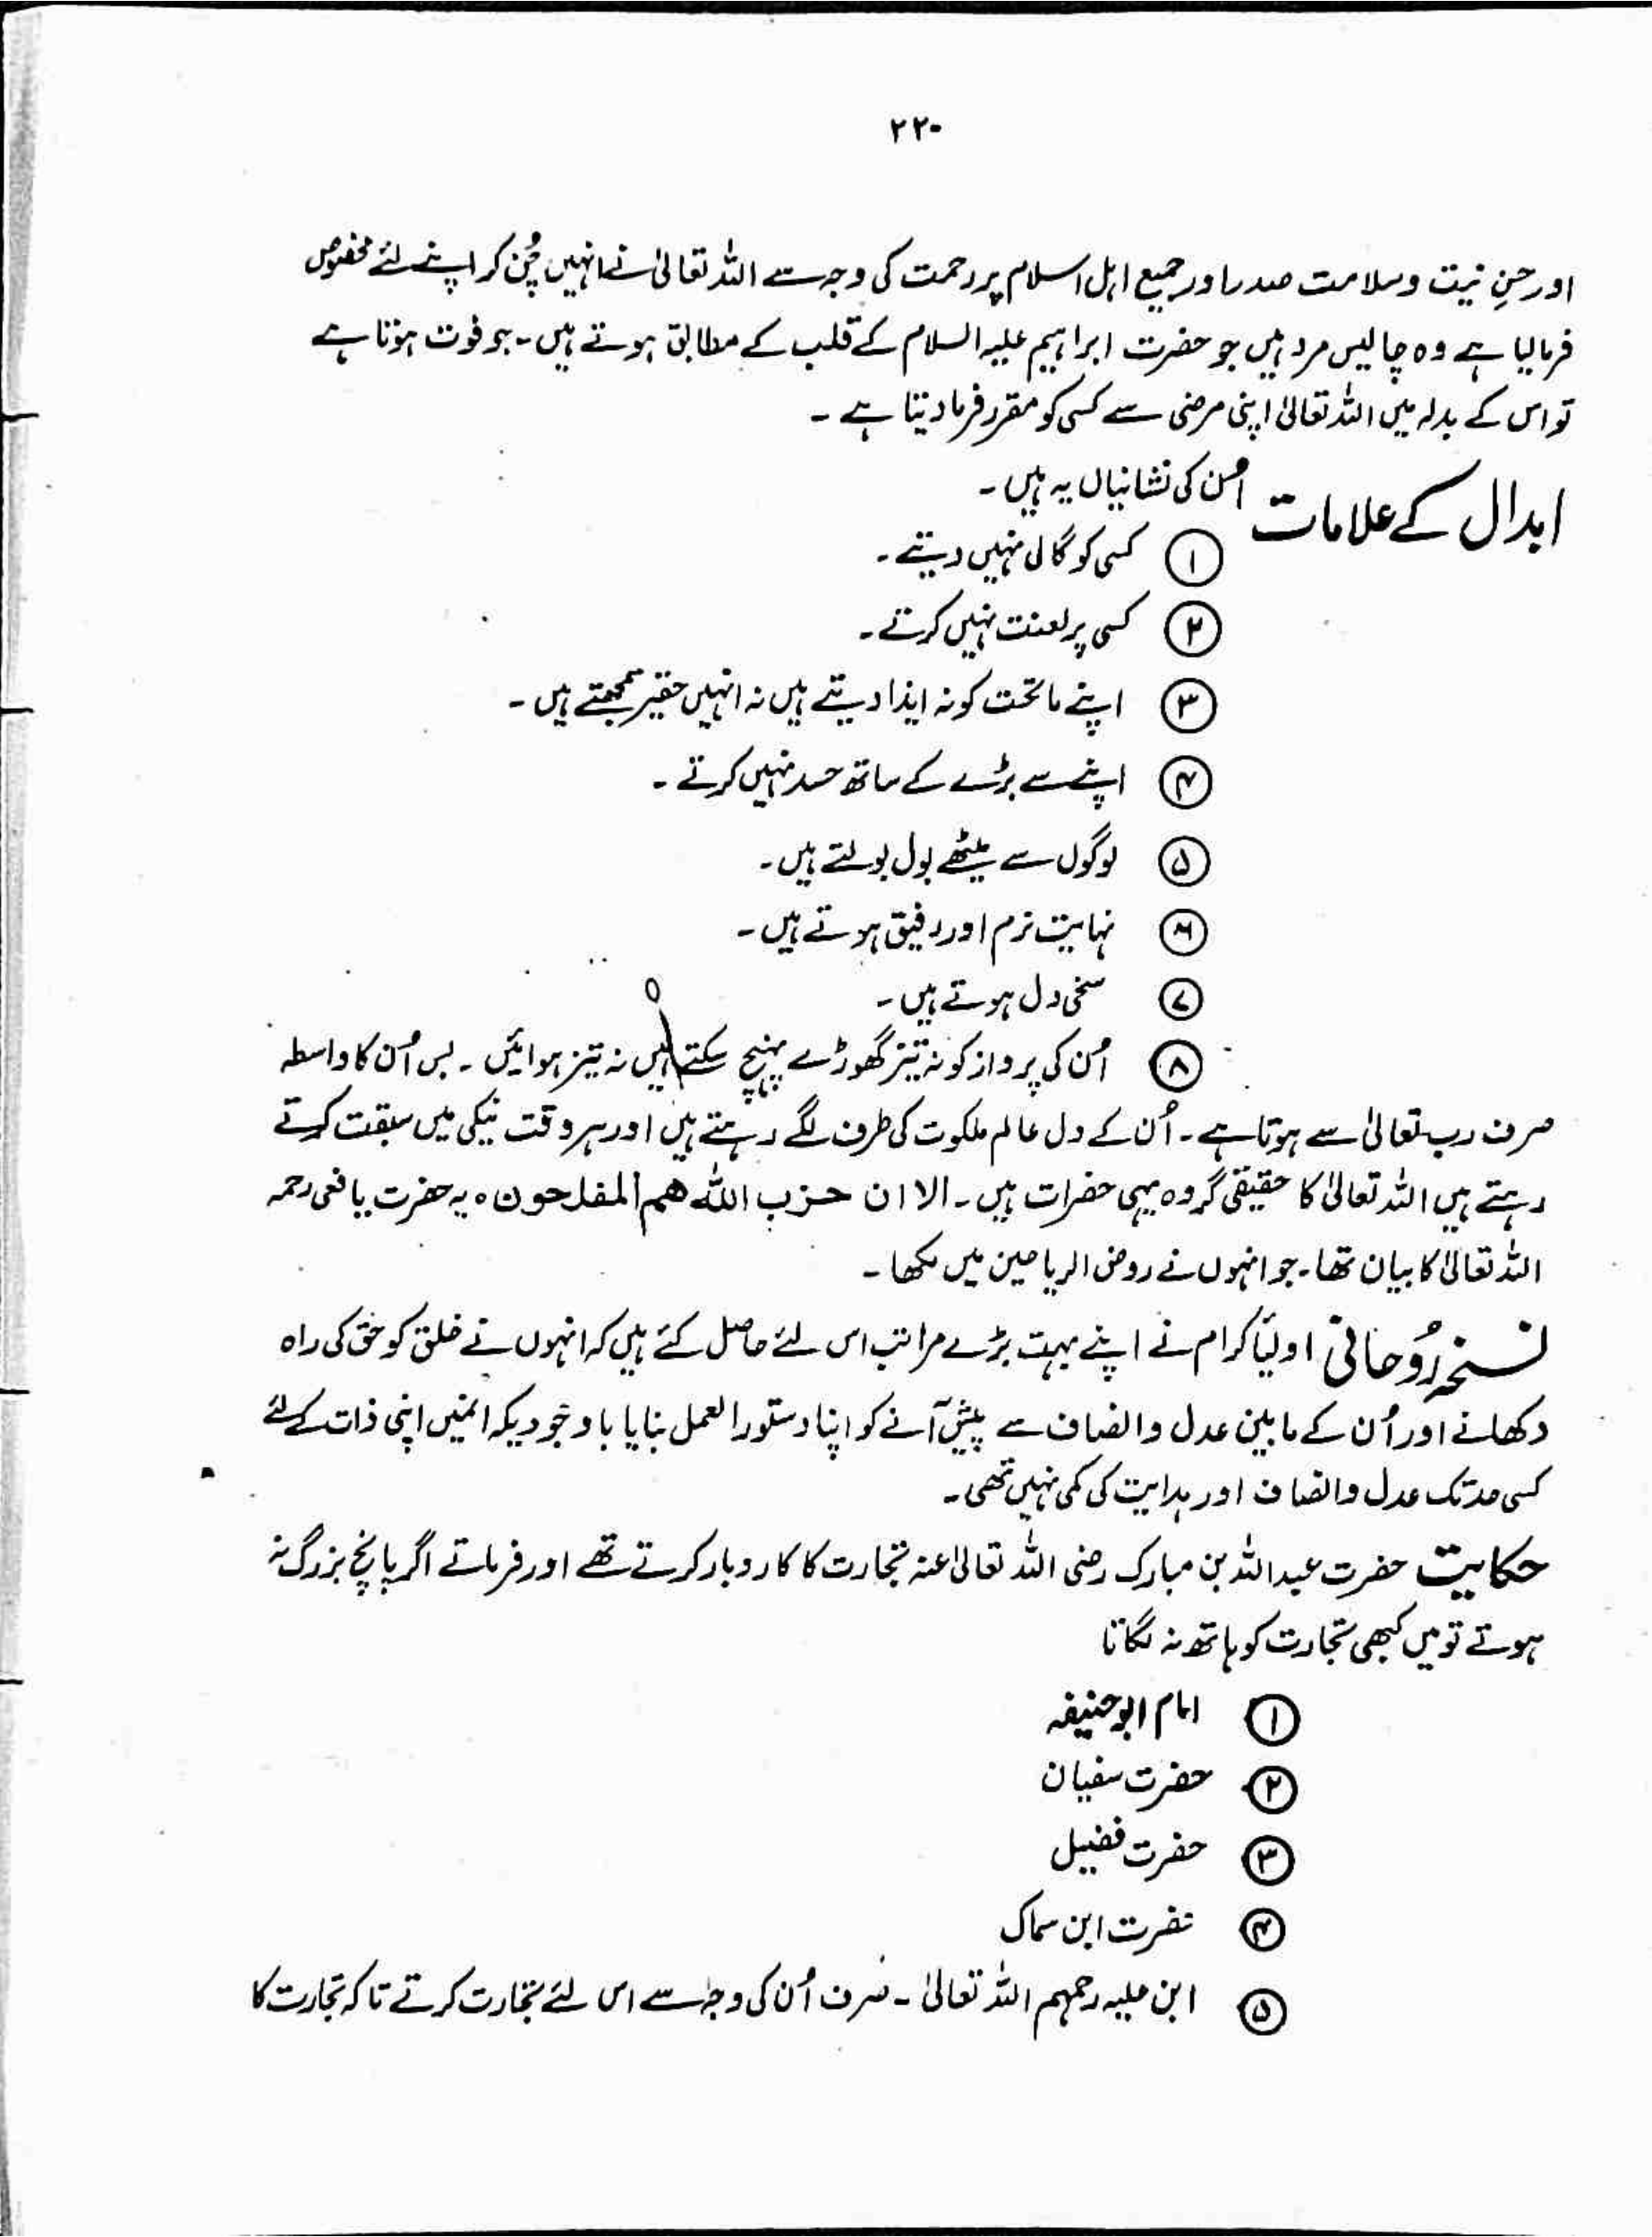 ۲۲۰
اور حسنِ نیت و سلامت صدر اور جمیع اہل اسلام پر رحمت کی وجہ سے اللہ تعالیٰ نے انہیں چُن کر اپنے لئے مخصوص
فرمالیا ہے وہ چالیس مرد ہیں جو حضرت ابراہیم علیہ السلام کے قلب کے مطابق ہوتے ہیں۔ جو فوت ہوتا ہے
تو اس کے بدلہ میں اللہ تعالیٰ اپنی مرضی سے کسی کو مقرر فرما دیتا ہے ۔
ابدال کے علامات اُن کی نشانیاں یہ ہیں ۔
① کسی کو گالی نہیں دیتے ۔
② کسی پر لعنت نہیں کرتے ۔
③ اپنے ماتحت کو نہ ایذا دیتے ہیں نہ انہیں حقیر سمجھتے ہیں ۔
④ اپنے سے بڑے کے ساتھ حسد نہیں کرتے ۔
⑤ لوگوں سے میٹھے بول بولتے ہیں ۔
⑥ نہایت نرم اور رفیق ہوتے ہیں ۔
⑦ سخی دل ہوتے ہیں ۔
⑧ اُن کی پرواز کو نہ تیز گھوڑے پہنچ سکتے ہیں نہ تیز ہوائیں ۔ بس اُن کا واسطہ
صرف رب تعالیٰ سے ہوتا ہے ۔ اُن کے دل عالم ملکوت کی طرف لگے رہتے ہیں اور ہر وقت نیکی میں سبقت کرتے
رہتے ہیں اللہ تعالیٰ کا حقیقی گروہ یہی حضرات ہیں ۔ الا ان حزب اللہ هم المفلحون ہ یہ حضرت یافعی رحمہ
اللہ تعالیٰ کا بیان تھا ۔ جو انہوں نے روض الریاحین میں لکھا ۔
نسخہ رُوحانی اولیأ کرام نے اپنے بہت بڑے مراتب اس لئے حاصل کئے ہیں کہ انہوں نے خلق کو حق کی راہ
دکھانے اور اُن کے مابین عدل و انصاف سے پیش آنے کو اپنا دستور العمل بنایا باوجودیکہ انھیں اپنی ذات کے لئے
کسی حد تک عدل و انصاف اور ہدایت کی کمی نہیں تھی ۔
حکایت حضرت عبداللہ بن مبارک رضی اللہ تعالیٰ عنہ تجارت کا کاروبار کرتے تھے اور فرماتے اگر پانچ بزرگ نہ
ہوتے تو میں کبھی تجارت کو ہاتھ نہ لگاتا
① امام ابو حنیفہ
② حضرت سفیان
③ حضرت فضیل
④ حضرت ابن سماک
⑤ ابن علیہ رحمہم اللہ تعالیٰ ۔ صرف اُن کی وجہ سے اس لئے تجارت کرتے تاکہ تجارت کا